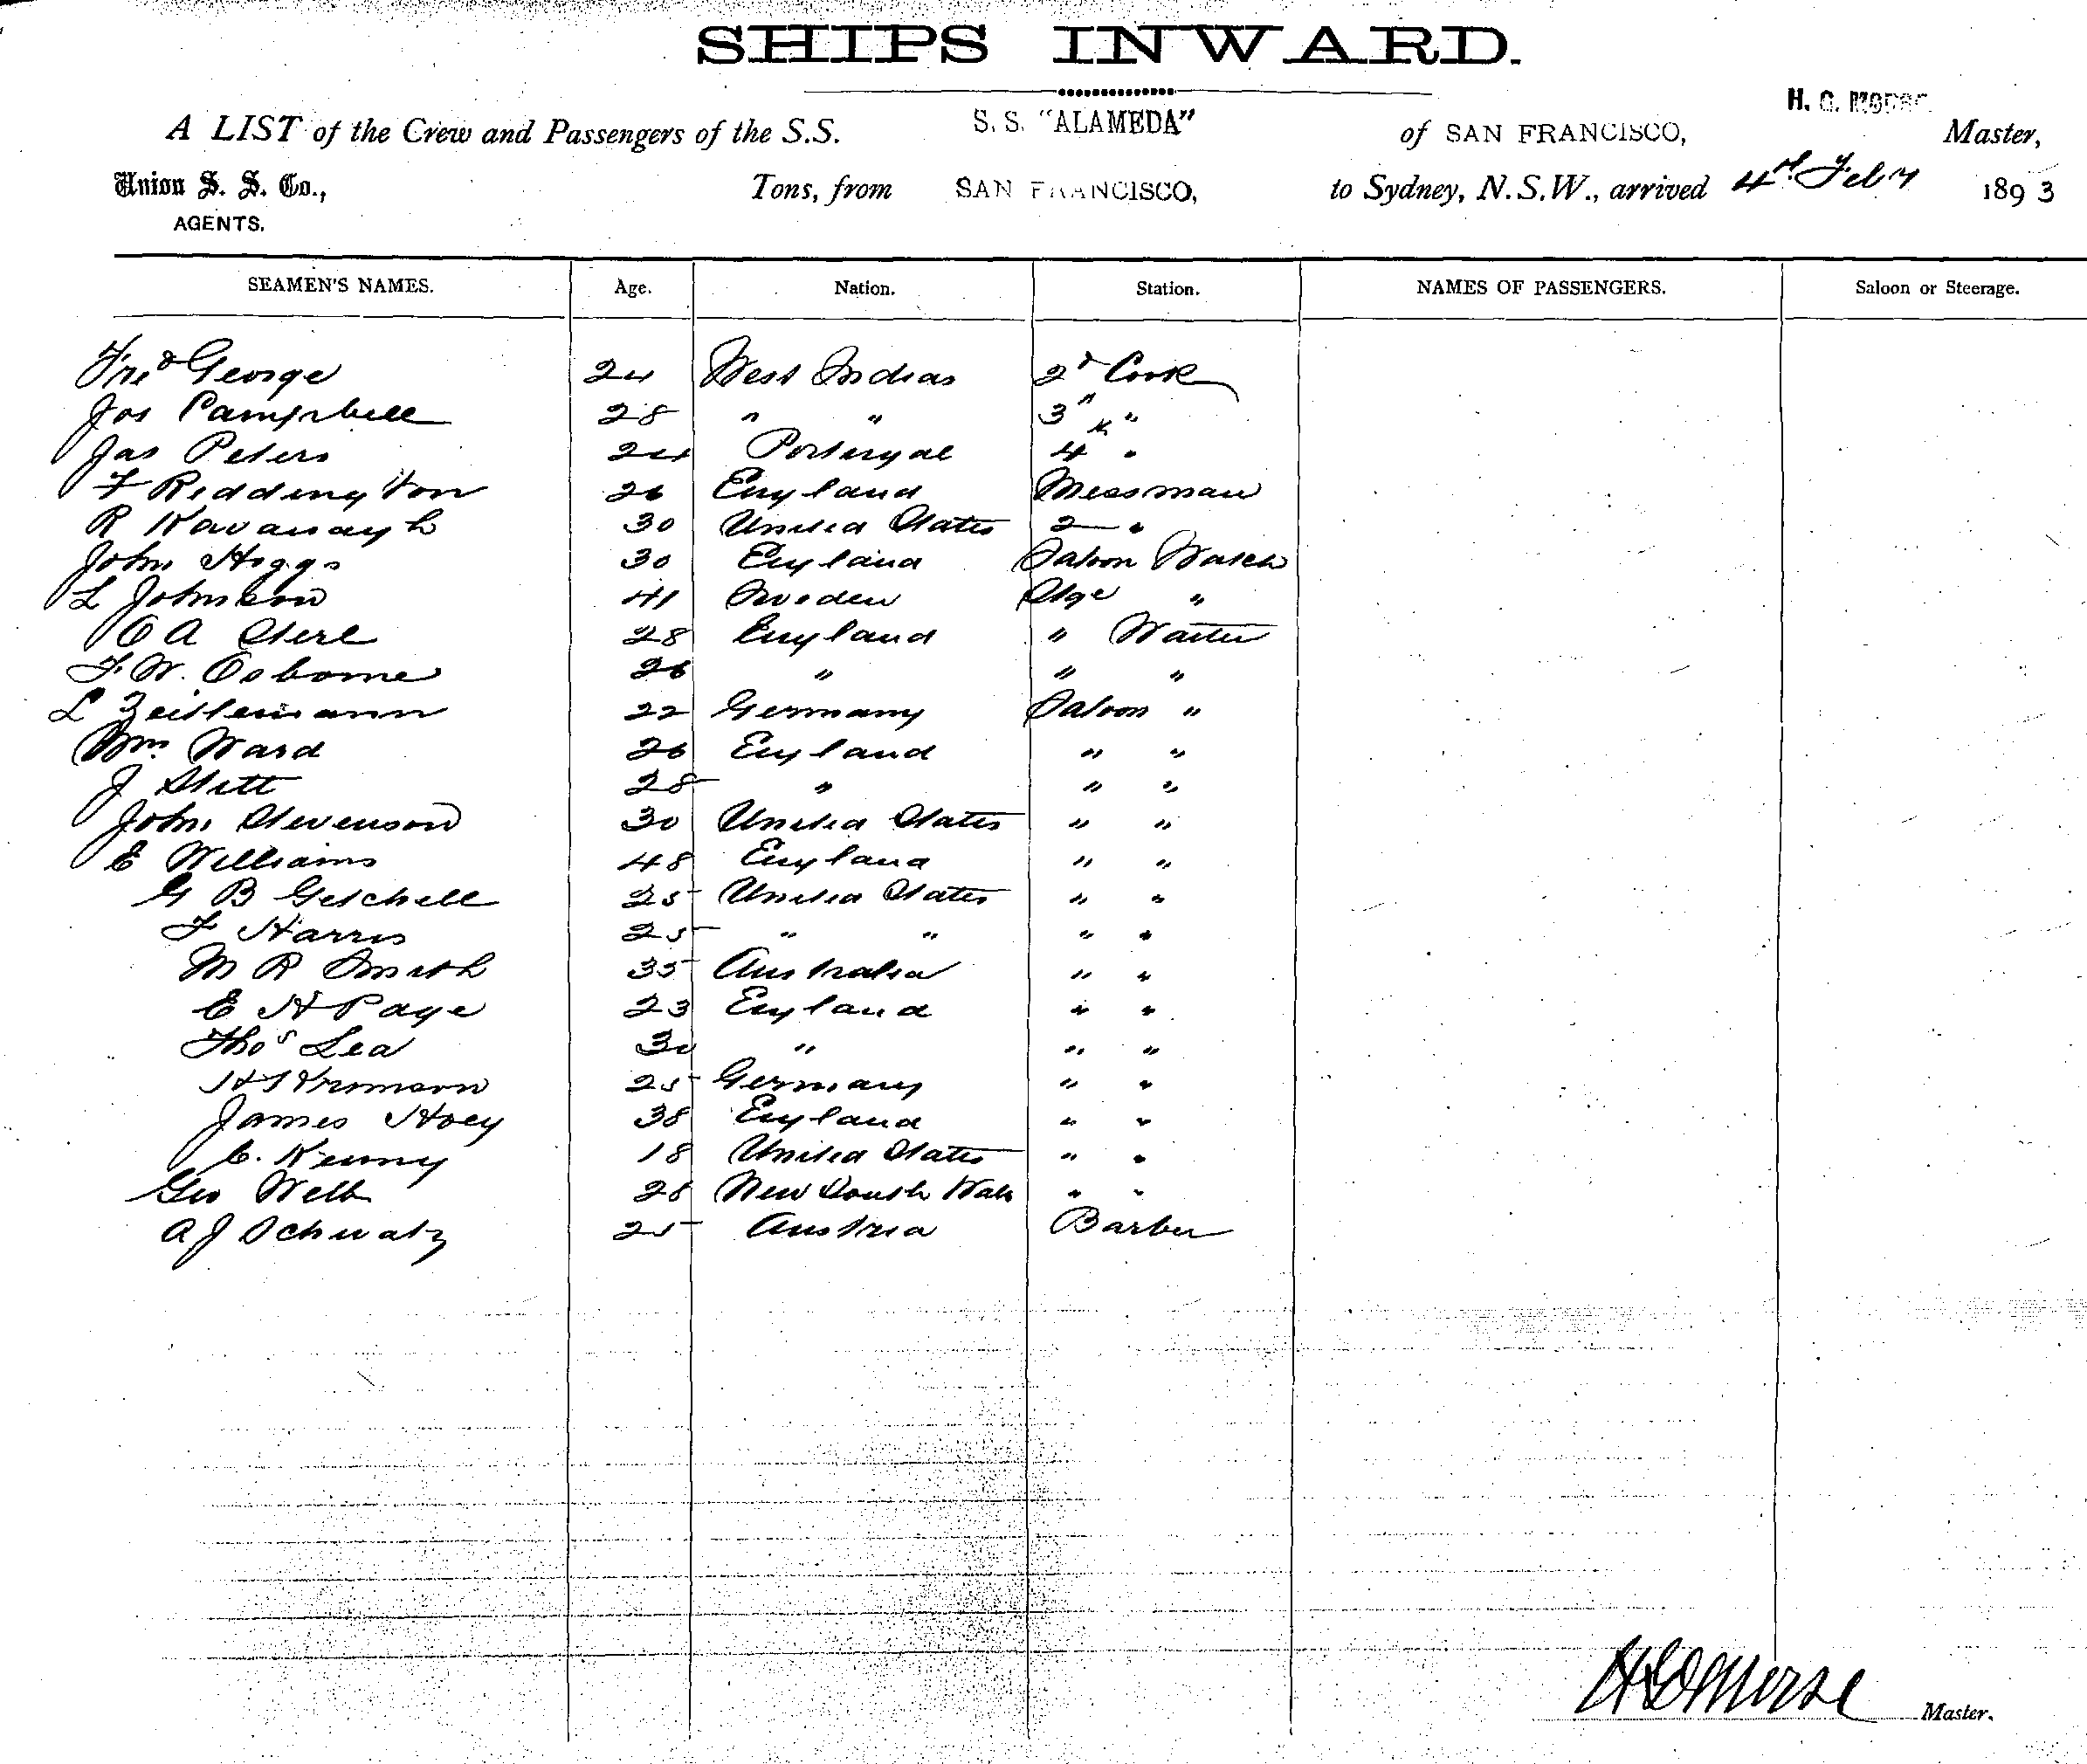 SHIPS INWARD.
H. G. Morse
A LIST of the Crew and Passengers of the S.S. S. S. "ALAMEDA" of SAN FRANCISCO, Master,
Union S. S. Co., Tons, from SAN FRANCISCO, to Sydney, N.S.W., arrived 4th Feby 1893
AGENTS.
SEAMEN'S NAMES. Age. Nation. Station. NAMES OF PASSENGERS. Saloon or Steerage.
Fred George 24 West Indias 2d Cook
Jos Campbell 28 " " 3" "
Jas Peters 24 Portugal 4 "
F Reddington 26 England Messman
R Kavanagh 30 United States 2 "
John Higgs 30 England Saloon Watch
L Johnson 41 Sweden Stge "
C A Sterl 28 England " Waiter
F. W. Osborne 26 " " "
L Zeitlemann 22 Germany Saloon "
Wm Ward 26 England " "
J Stitt 28 " " "
John Stevenson 30 United States " "
E Williams 48 England " "
G B Getchell 25 United States " "
F Harris 25 " " " "
M R Smith 35 Australia " "
E H Page 23 England " "
Thos Lea 30 " " "
25 Germany " "
James Hoey 38 England " "
C. Kenny 18 United States " "
Geo Webb 28 New South Wales " "
A J Schwatz 25 Austria Barber
HGMorse Master.